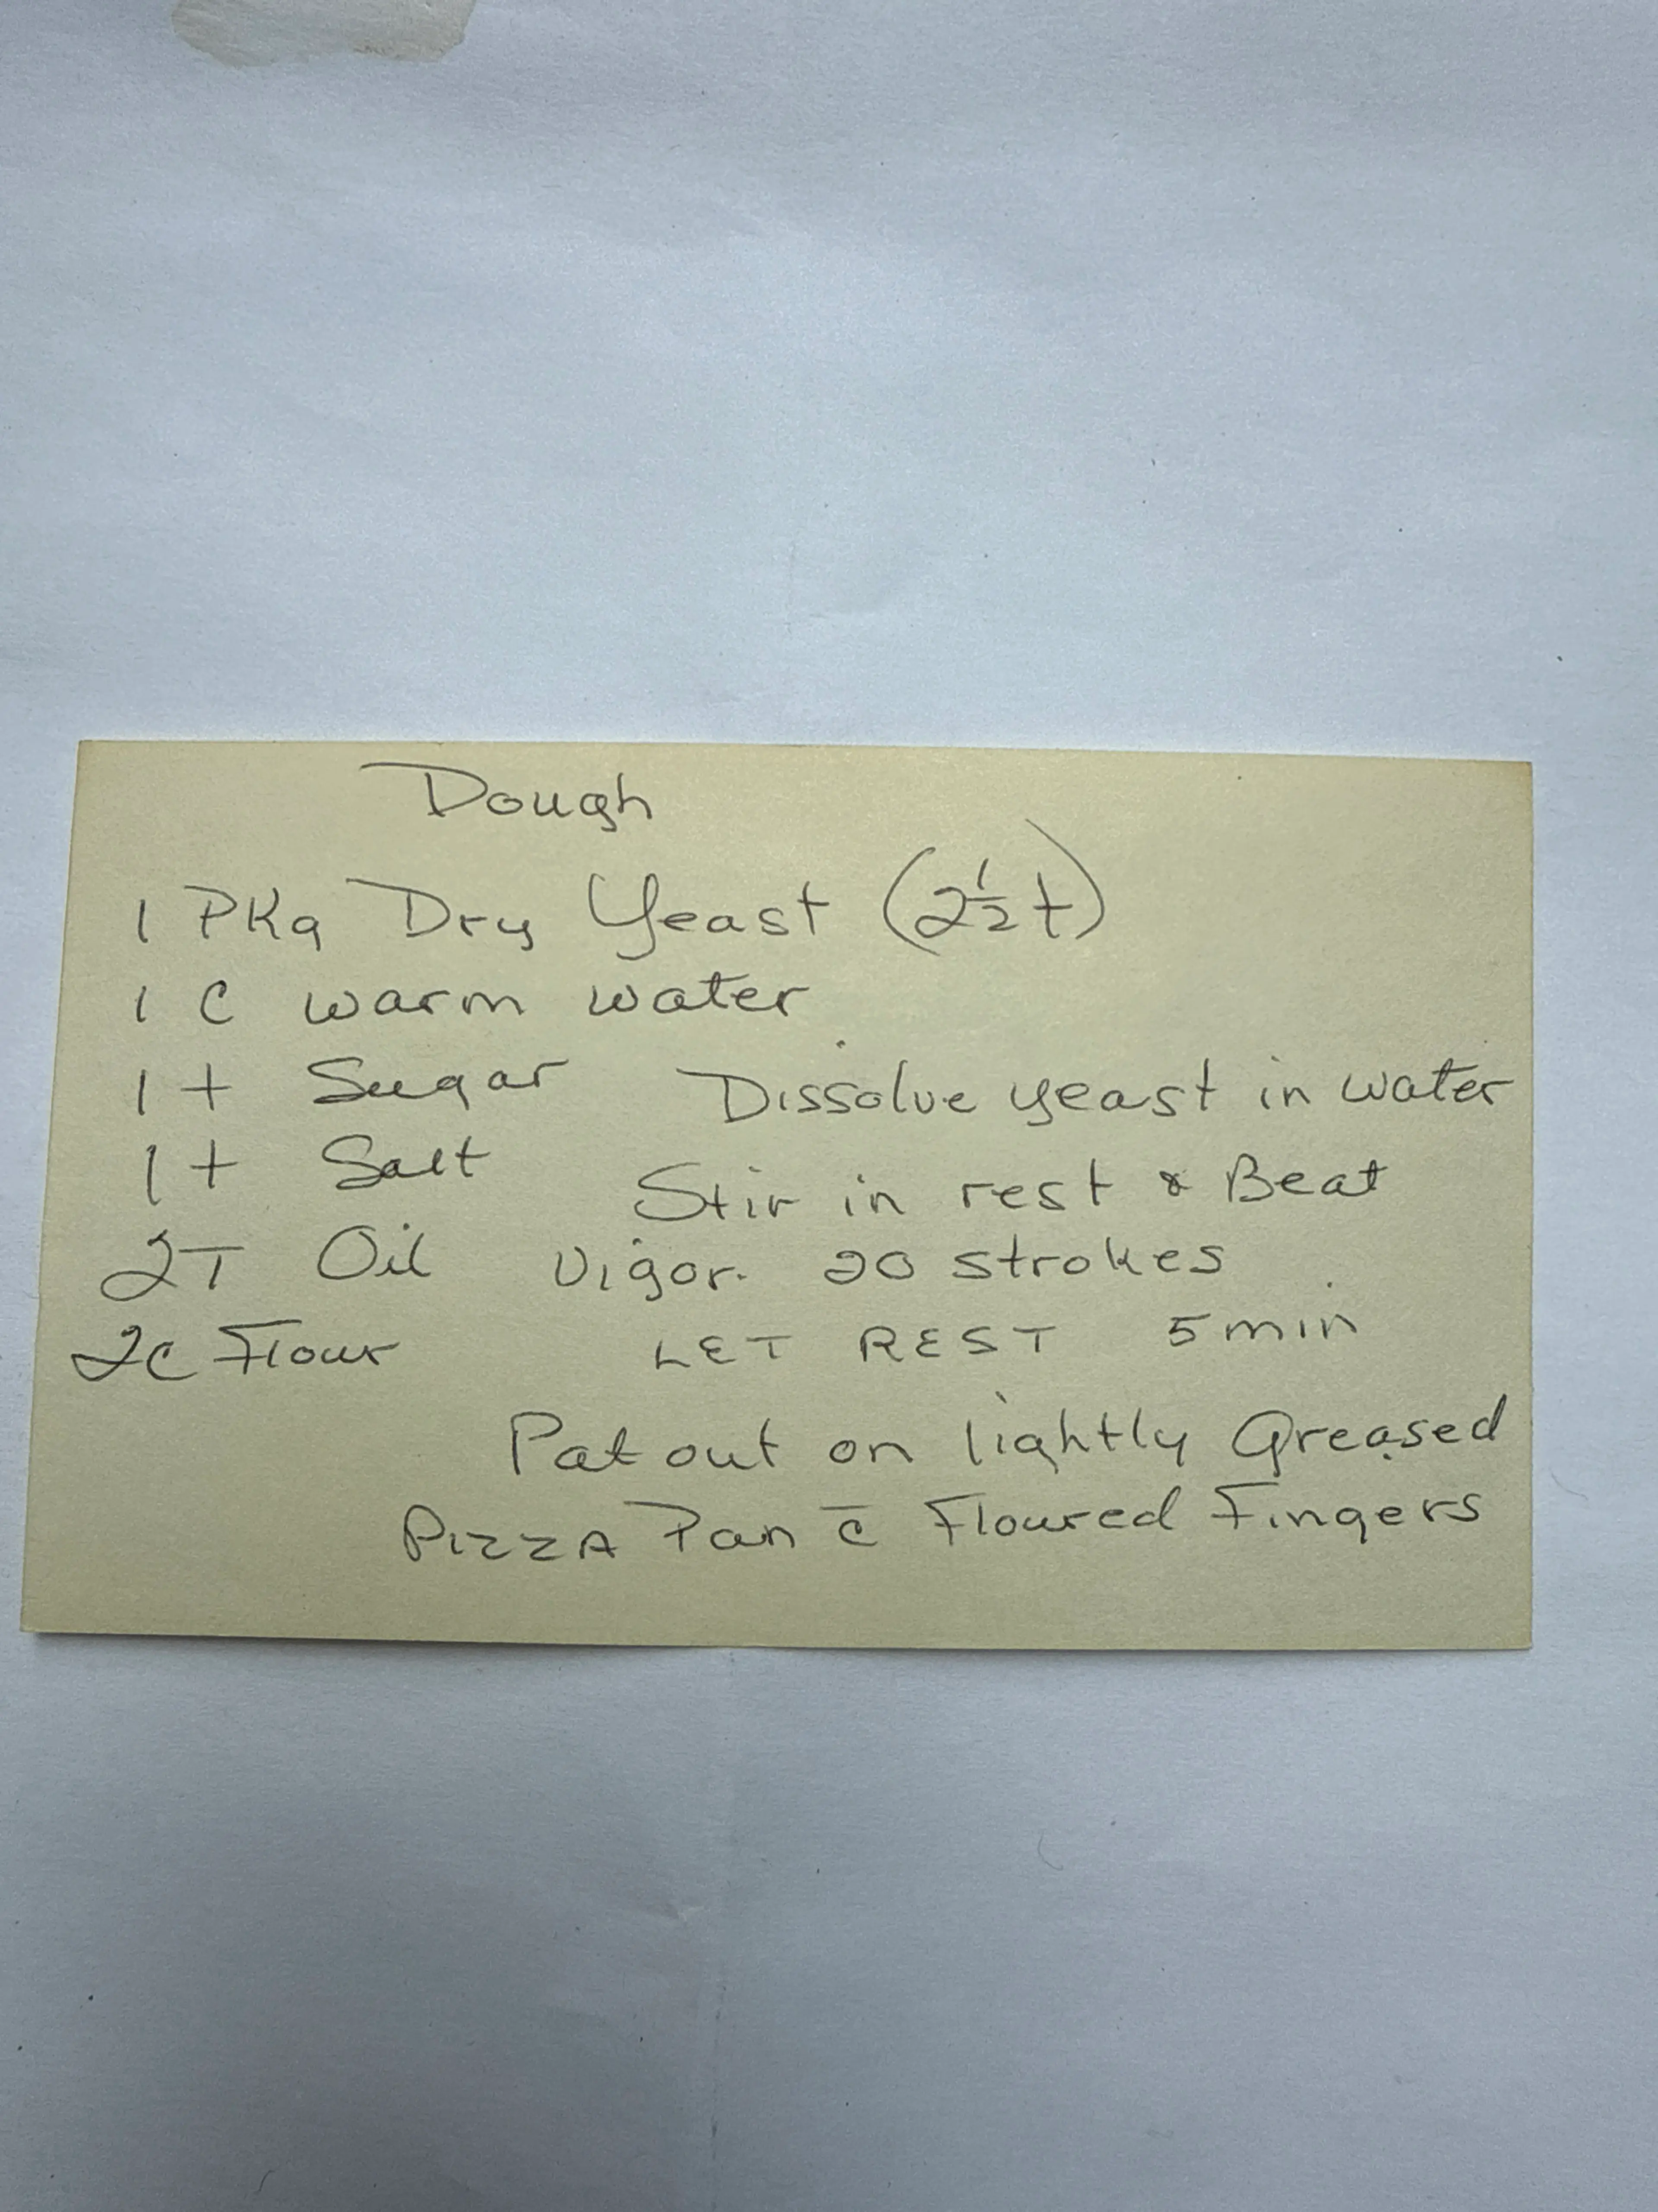 Dough
1 PKg Dry Yeast (2½ t)
1 C warm water
1 t Sugar
1 t Salt
2T Oil
2c Flour
Dissolve yeast in water
Stir in rest & Beat
Vigor. 20 strokes
LET REST 5 min
Pat out on lightly Greased
PIZZA Pan c̄ Floured Fingers